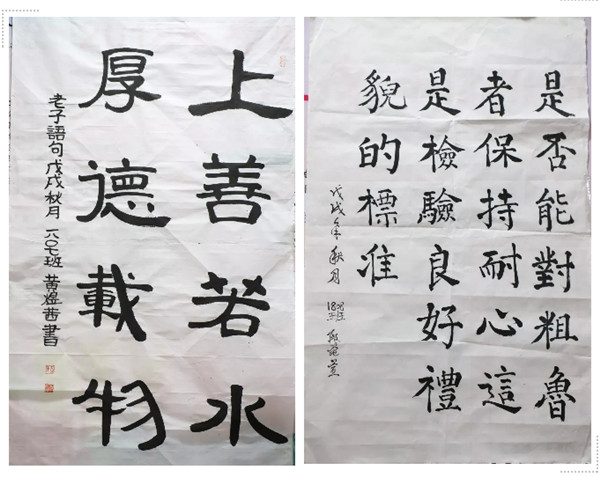 上善若水
厚德載物
老子語句 戊戌秋月 一八〇七班 黄煜茜書
是否能對粗魯
者保持耐心這
是檢驗良好禮
貌的標准
戊戌年秋月 班